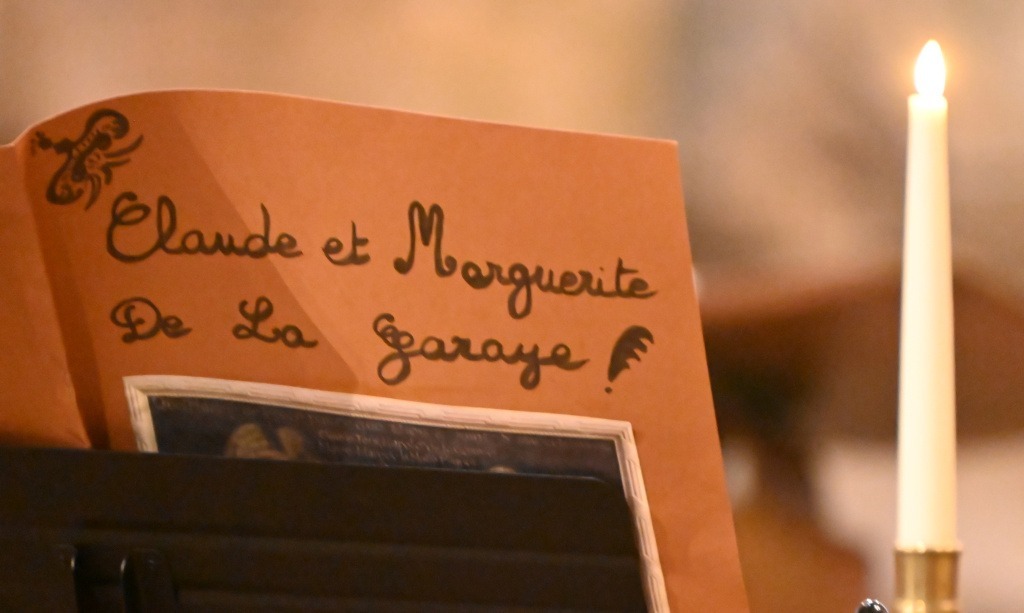 Claude et Marguerite
De La Garaye